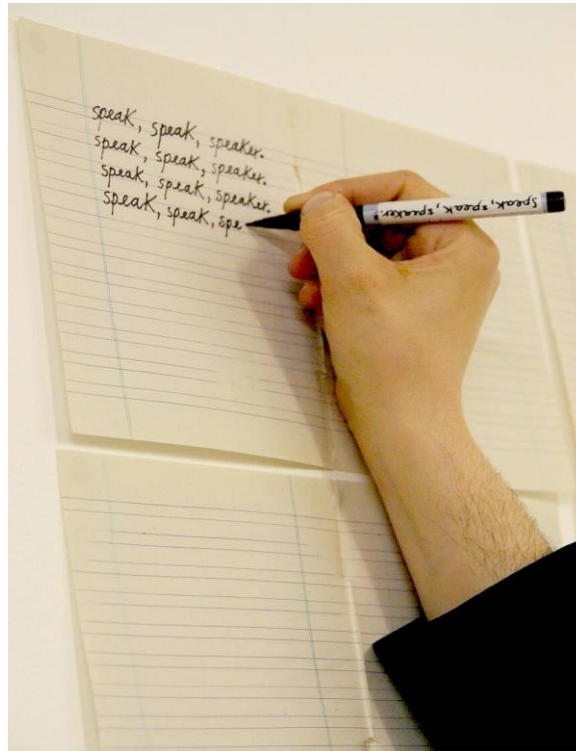 speak, speak, speaker.
speak, speak, speaker.
speak, speak, speaker.
speak, speak, spe
speak, speak, speaker.